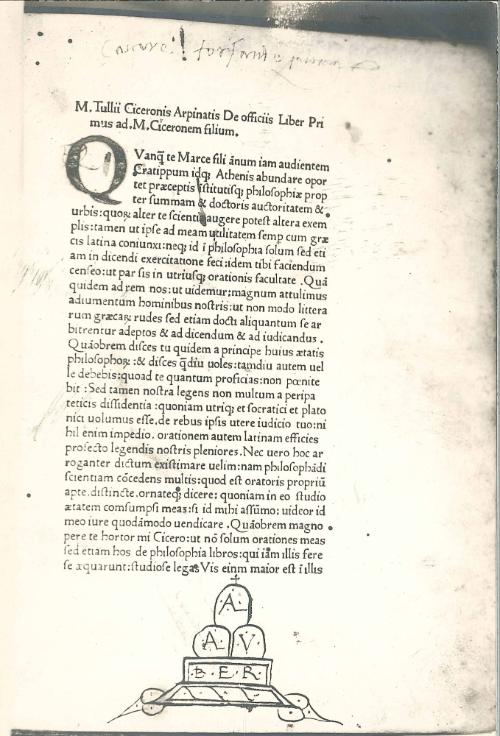 M. Tullii Ciceronis Arpinatis De officiis Liber Pri
mus ad. M. Ciceronem filium.
QVanq̃ te Marce fili ãnum iam audientem
Cratippum idq; Athenis abundare opor
tet præceptis istitutisq; philosophiæ prop
ter summam & doctoris auctoritatem &
urbis: quoꝝ alter te scientia augere potest altera exem
plis: tamen ut ipse ad meam utilitatem semp cum græ
cis latina coniunxi: neq; id ĩ philosophia solum sed eti
am in dicendi exercitatione feci: idem tibi faciendum
censeo: ut par sis in utriusq; orationis facultate. Quã
quidem ad rem nos: ut uidemur: magnum attulimus
adiumentum hominibus nostris: ut non modo littera
rum græcaꝝ rudes sed etiam docti aliquantum se ar
bitrentur adeptos & ad dicendum & ad iudicandus.
Quãobrem disces tu quidem a principe huius ætatis
philosophoꝝ: & disces q̃diu uoles: tamdiu autem uel
le debebis: quoad te quantum proficias: non pœnite
bit: Sed tamen nostra legens non multum a peripa
teticis dissidentia: quoniam utriq; et socratici et plato
nici uolumus esse. de rebus ipsis utere iudicio tuo: ni
hil enim impedio. orationem autem latinam efficies
profecto legendis nostris pleniorem. Nec uero hoc ar
roganter dictum existimare uelim: nam philosophãdi
scientiam cõcedens multis: quod est oratoris propriũ
apte. distincte. ornateq; dicere: quoniam in eo studio
ætatem comsumpsi meas: si id mihi assũmo: uideor id
meo iure quodãmodo uendicare. Quãobrem magno
pere te hortor mi Cicero: ut nõ solum orationes meas
sed etiam hos de philosophia libros: qui iãm illis fere
se æquarunt: studiose legas Vis einm maior est ĩ illis
A
A V
B. E. R